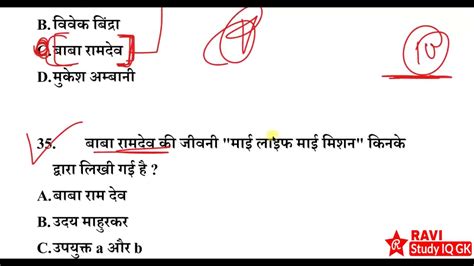 B. विवेक बिंद्रा
C. बाबा रामदेव
D. मुकेश अम्बानी
35. बाबा रामदेव की जीवनी "माई लाइफ माई मिशन" किनके
द्वारा लिखी गई है ?
A. बाबा राम देव
B. उदय माहुरकर
C. उपयुक्त a और b
RAVI
Study IQ GK